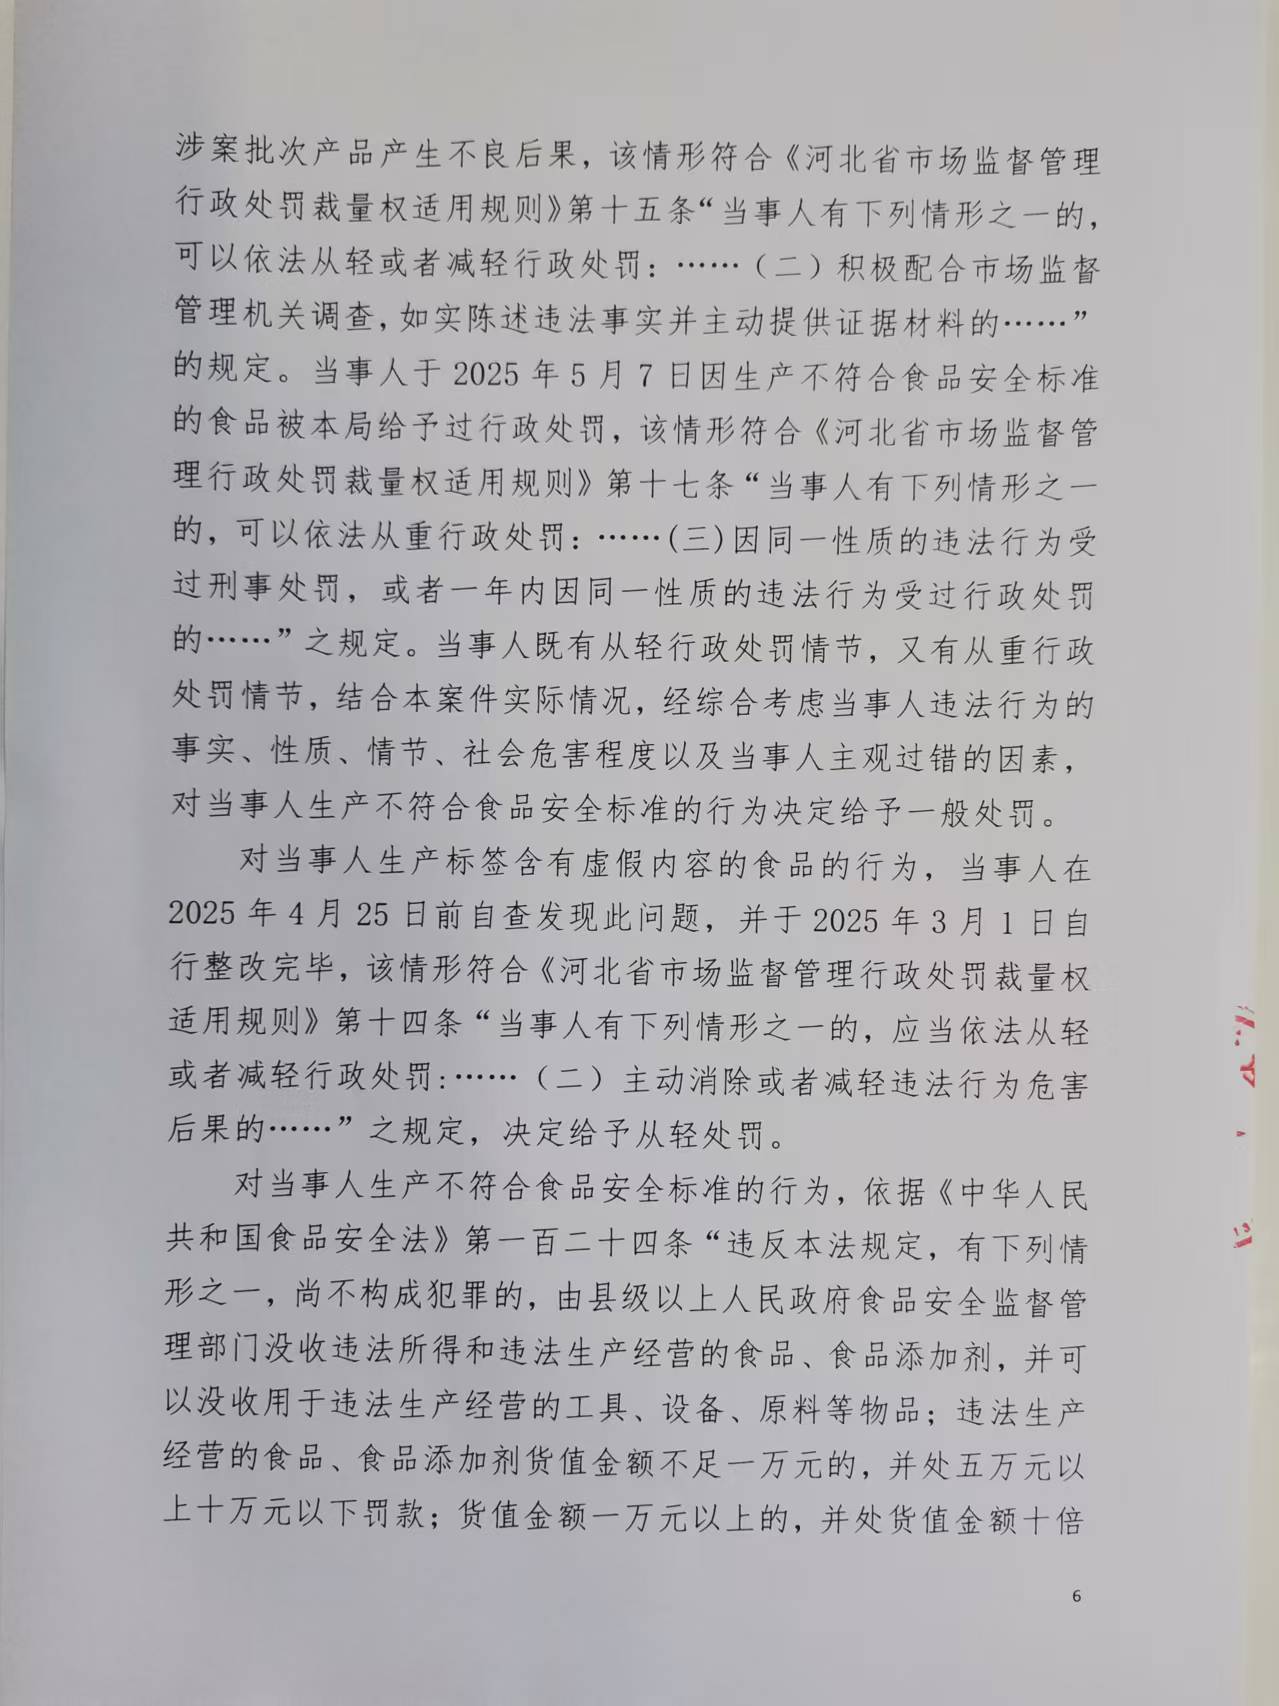 涉案批次产品产生不良后果，该情形符合《河北省市场监督管理
行政处罚裁量权适用规则》第十五条“当事人有下列情形之一的，
可以依法从轻或者减轻行政处罚：……（二）积极配合市场监督
管理机关调查，如实陈述违法事实并主动提供证据材料的……”
的规定。当事人于 2025 年 5 月 7 日因生产不符合食品安全标准
的食品被本局给予过行政处罚，该情形符合《河北省市场监督管
理行政处罚裁量权适用规则》第十七条“当事人有下列情形之一
的，可以依法从重行政处罚：……(三)因同一性质的违法行为受
过刑事处罚，或者一年内因同一性质的违法行为受过行政处罚
的……”之规定。当事人既有从轻行政处罚情节，又有从重行政
处罚情节，结合本案件实际情况，经综合考虑当事人违法行为的
事实、性质、情节、社会危害程度以及当事人主观过错的因素，
对当事人生产不符合食品安全标准的行为决定给予一般处罚。
对当事人生产标签含有虚假内容的食品的行为，当事人在
2025 年 4 月 25 日前自查发现此问题，并于 2025 年 3 月 1 日自
行整改完毕，该情形符合《河北省市场监督管理行政处罚裁量权
适用规则》第十四条“当事人有下列情形之一的，应当依法从轻
或者减轻行政处罚:……（二）主动消除或者减轻违法行为危害
后果的……”之规定，决定给予从轻处罚。
对当事人生产不符合食品安全标准的行为，依据《中华人民
共和国食品安全法》第一百二十四条“违反本法规定，有下列情
形之一，尚不构成犯罪的，由县级以上人民政府食品安全监督管
理部门没收违法所得和违法生产经营的食品、食品添加剂，并可
以没收用于违法生产经营的工具、设备、原料等物品；违法生产
经营的食品、食品添加剂货值金额不足一万元的，并处五万元以
上十万元以下罚款；货值金额一万元以上的，并处货值金额十倍
6